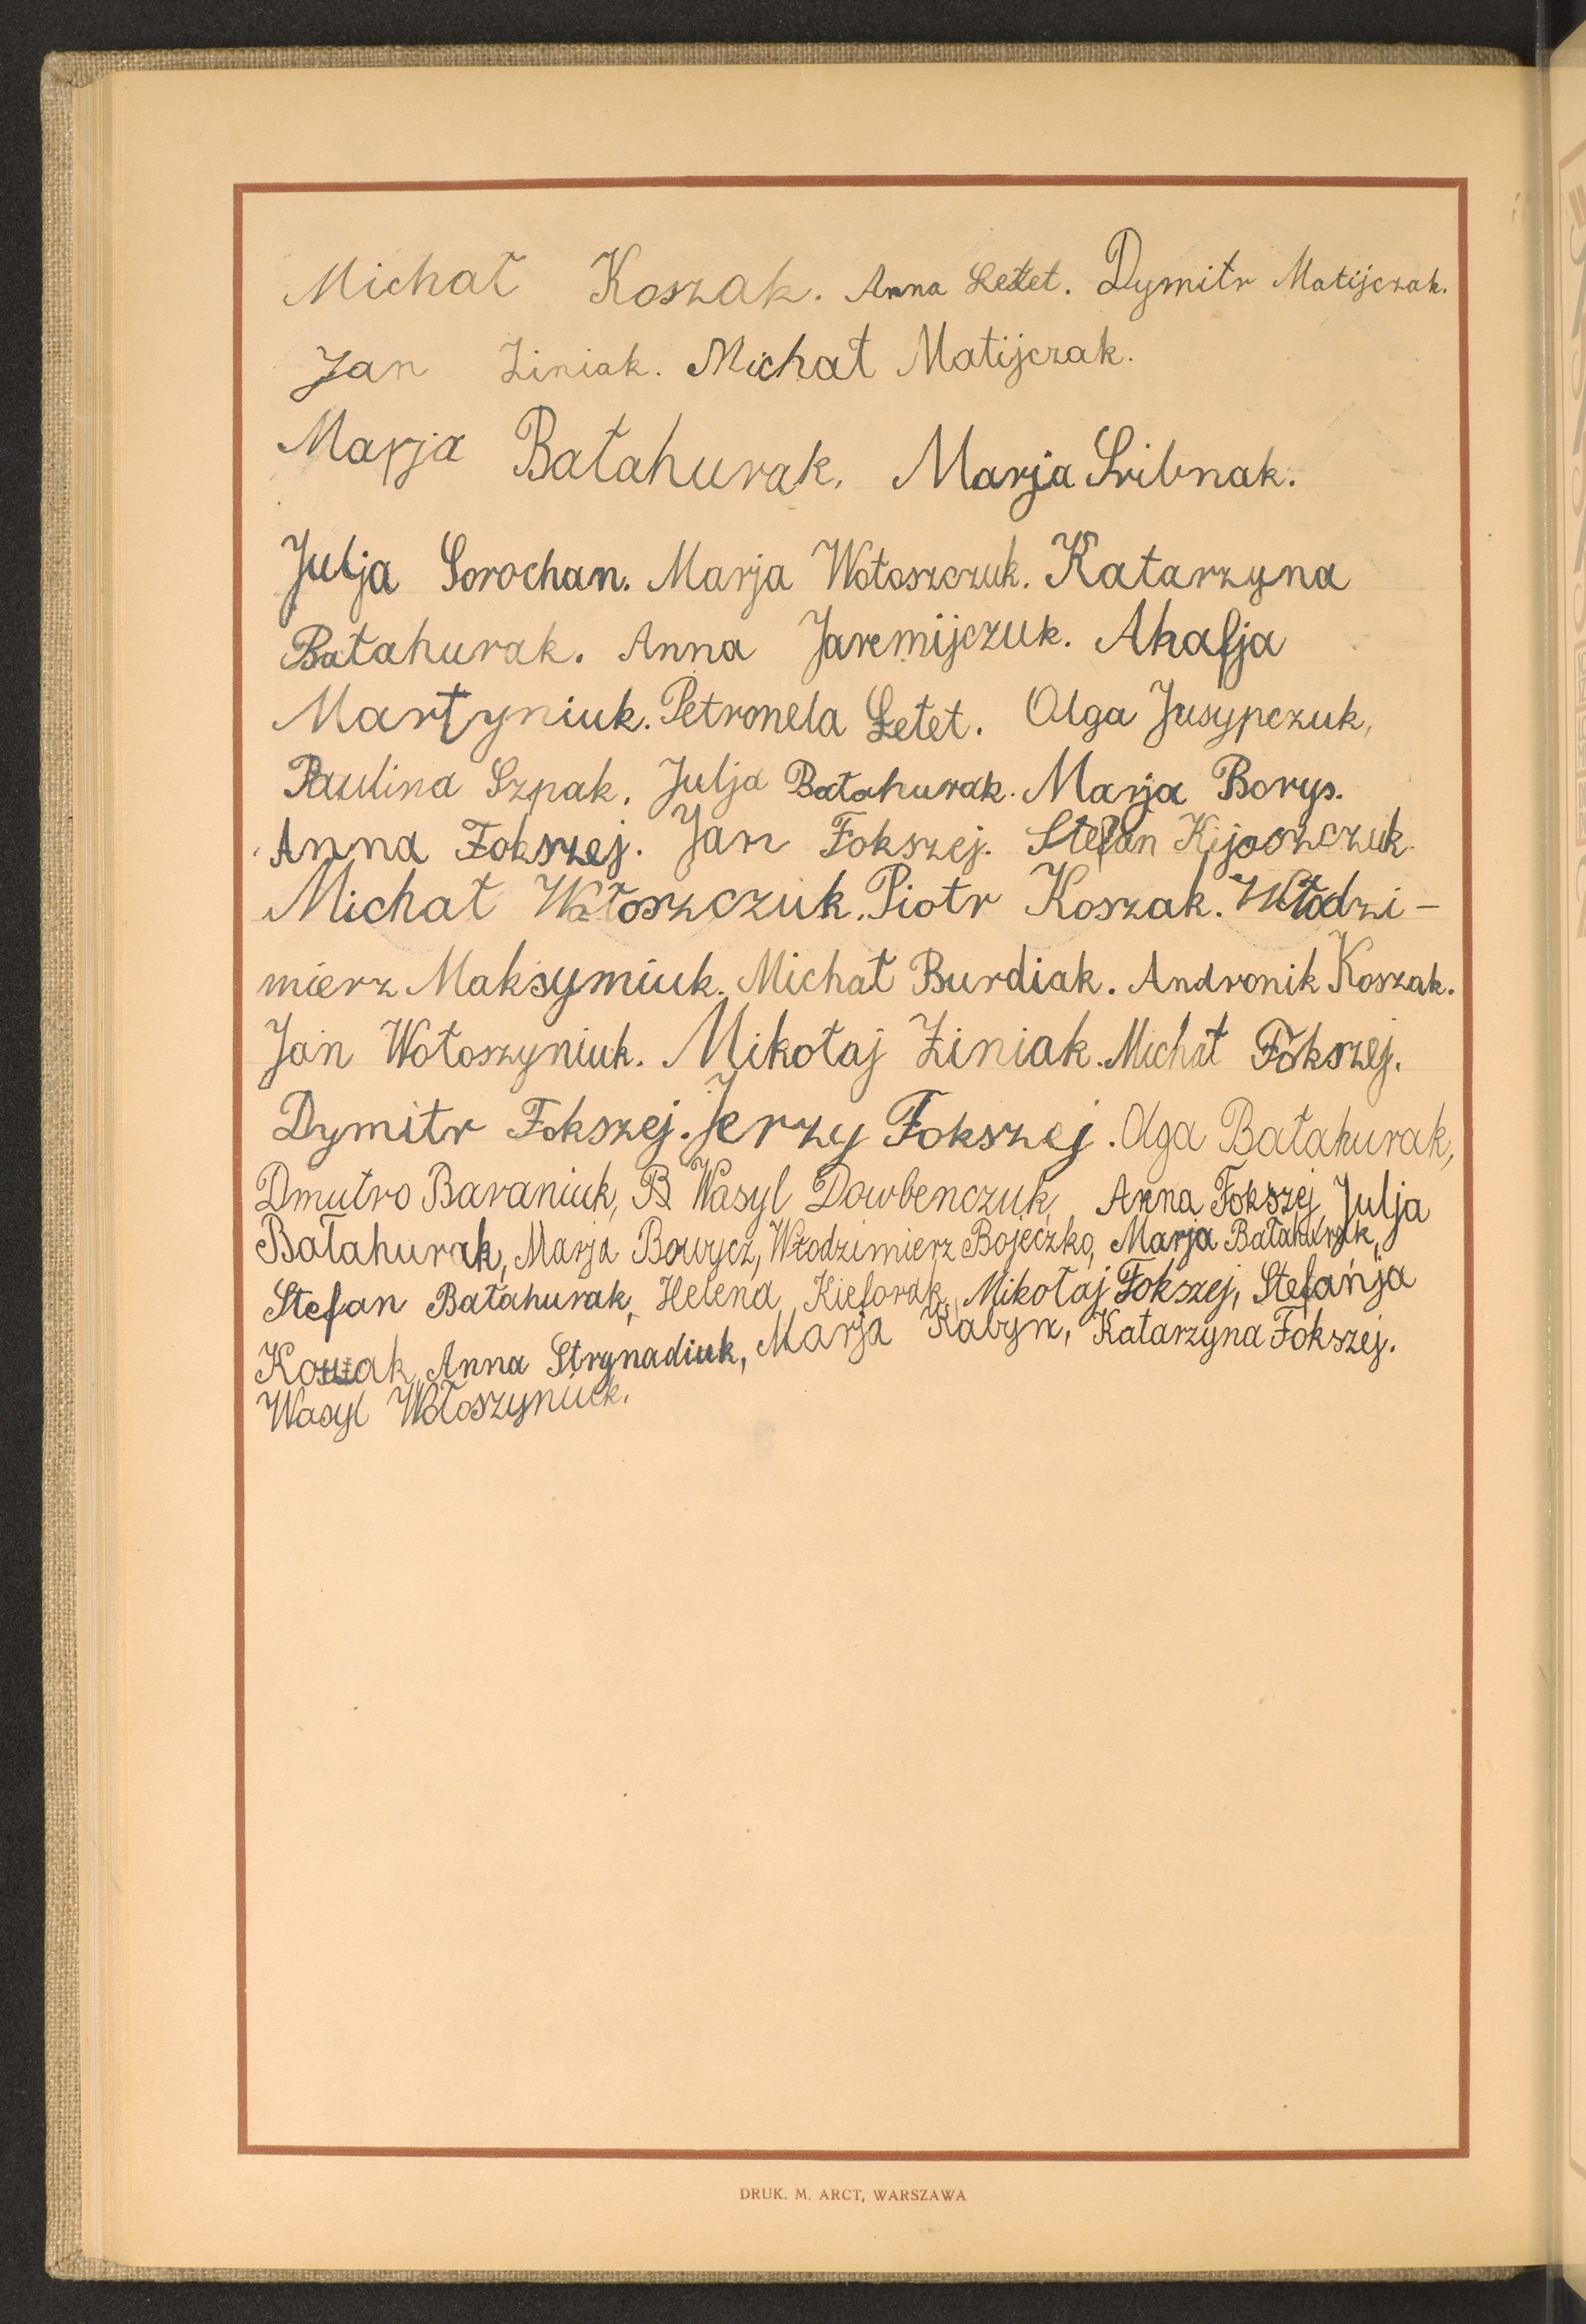 Michał Koszak. Anna Łetet. Dymitr Matijczak.
Jan Ziniak. Michał Matijczak.
Marja Bałahurak. Marja Sribnak.
Julja Sorochan. Marja Wołoszczuk. Katarzyna
Bałahurak. Anna Jaremijczuk. Ahafja
Martyniuk. Petronela Łetet. Olga Jusypczuk,
Paulina Szpak. Julja Bałahurak. Marja Borys.
Anna Fokszej. Jan Fokszej. Stefan Kijaszczuk.
Michał Wołoszczuk. Piotr Koszak. Włodzi-
mierz Maksymiuk. Michał Burdiak. Andronik Koszak.
Jan Wołoszyniuk. Mikołaj Ziniak. Michał Fokszej.
Dymitr Fokszej. Jerzy Fokszej. Olga Bałahurak,
Dmutro Baraniuk, B Wasyl Dowbenczuk, Anna Fokszej, Julja
Bałahurak, Marja Bowycz, Włodzimierz Bojeczko, Marja Bałahurak,
Stefan Bałahurak, Helena Kieforak, Mikołaj Fokszej, Stefanja
Anna Strynadiuk, Marja Kabyn, Katarzyna Fokszej.
Wasyl Wołoszyniuk.
DRUK. M. ARCT, WARSZAWA